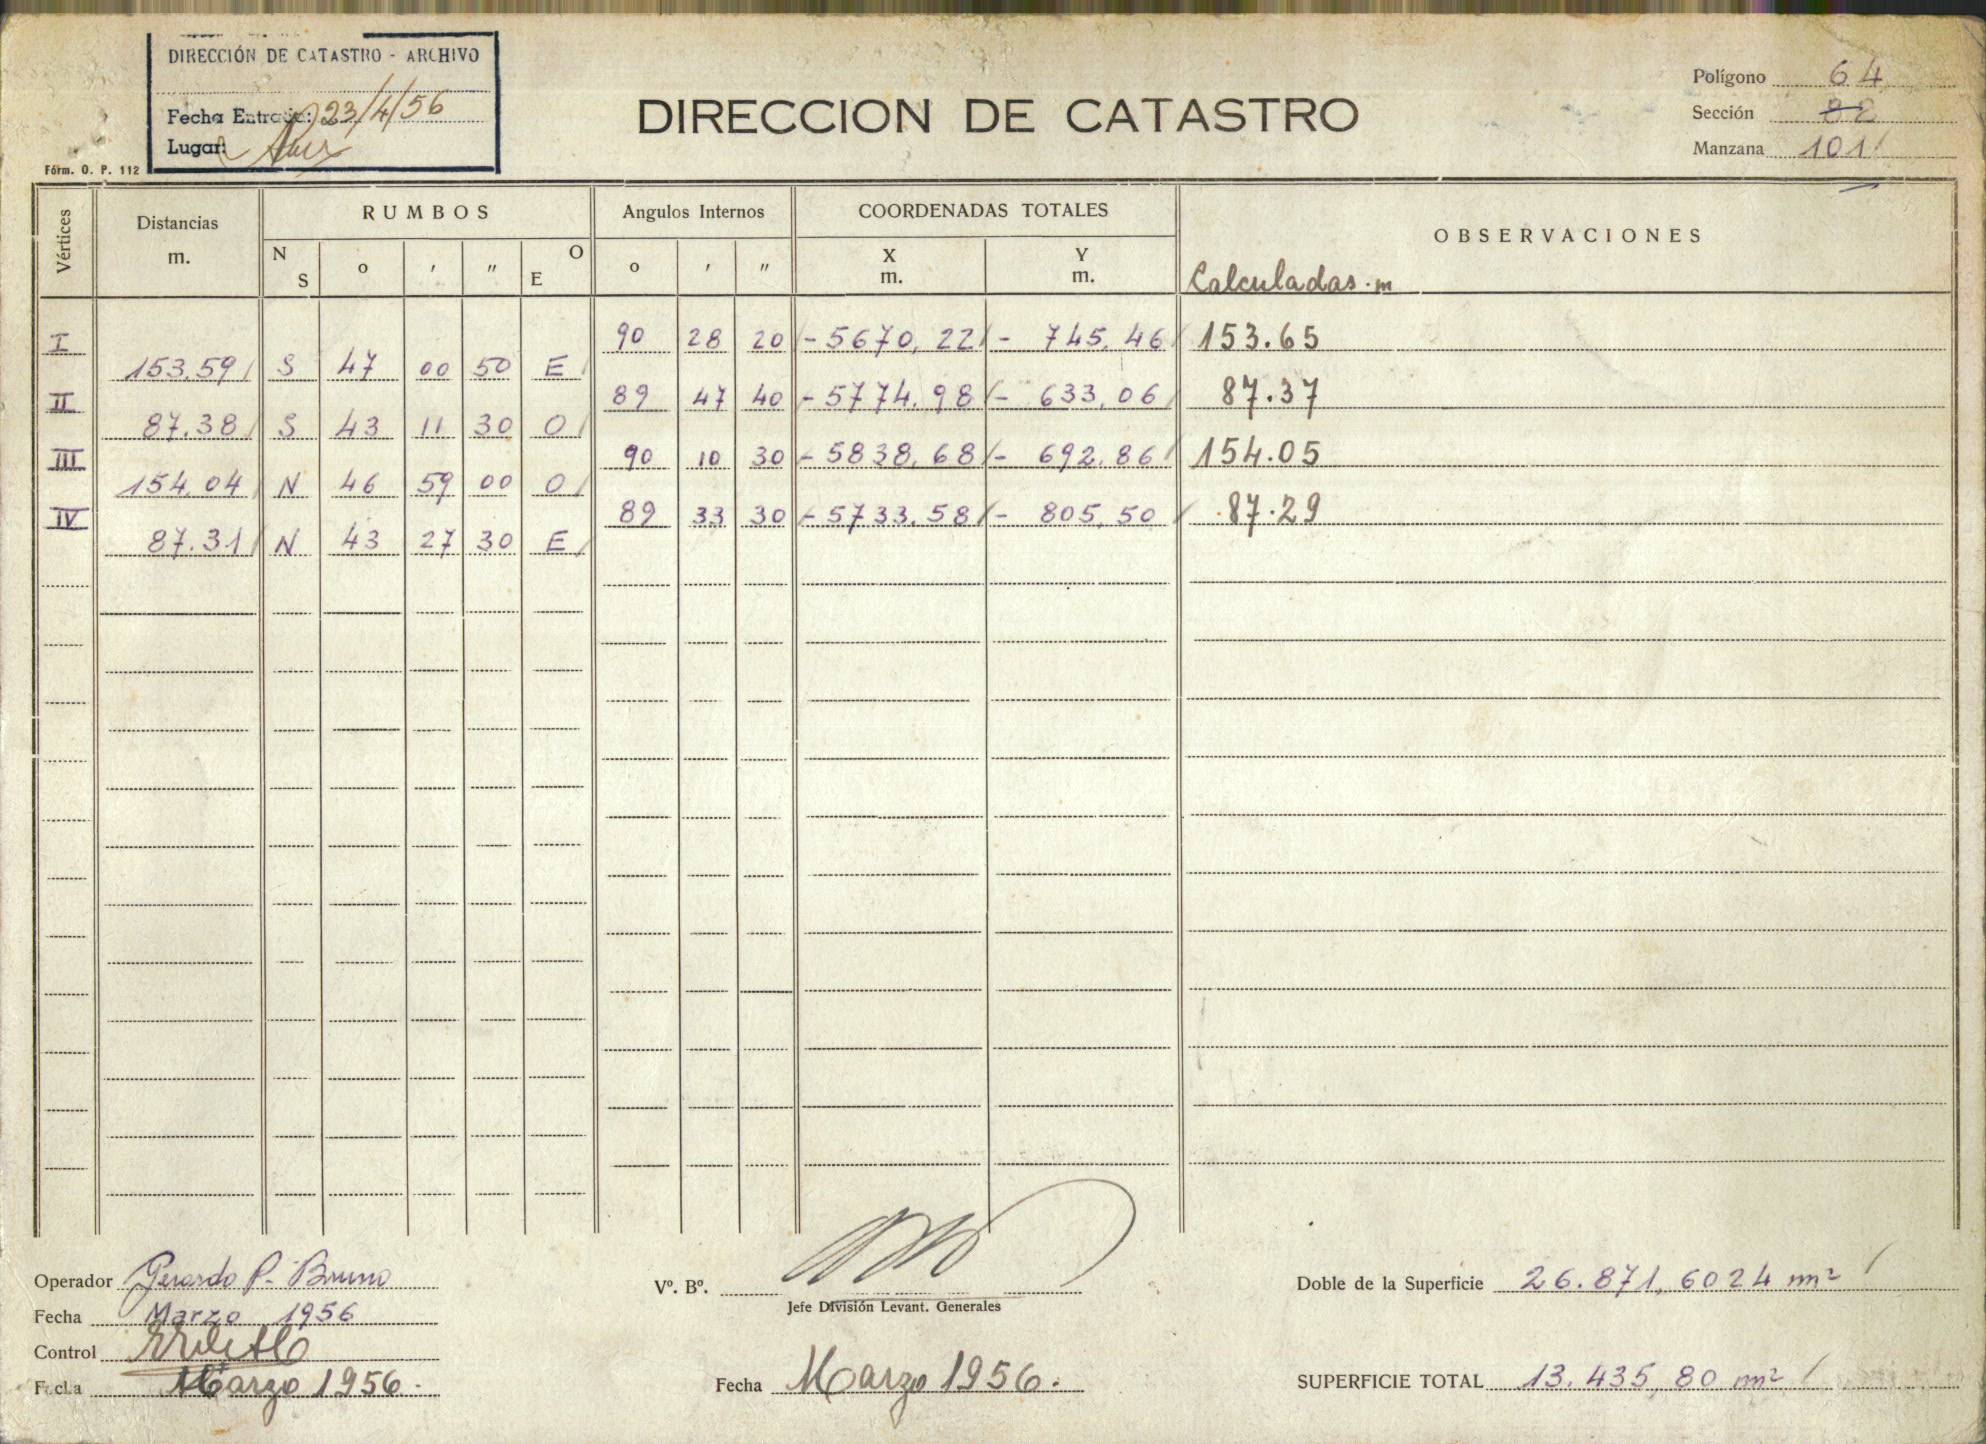 DIRECCIÓN DE CATASTRO - ARCHIVO
Fecha Entrada: 23/4/56
Lugar:
Fórm. O. P. 112
DIRECCION DE CATASTRO
Polígono 64
Sección
Manzana 101
Vértices Distancias m. RUMBOS Angulos Internos COORDENADAS TOTALES OBSERVACIONES
N S o ' " O E o ' " X m. Y m. Calculadas. m
I 90 28 20 - 5670,22 - 745,46 153.65
153.59 S 47 00 50 E
II 89 47 40 - 5774,98 - 633,06 87.37
87.38 S 43 11 30 O
III 90 10 30 - 5838,68 - 692,86 154.05
154.04 N 46 59 00 O
IV 89 33 30 - 5733,58 - 805,50 87.29
87.31 N 43 27 30 E
Operador Gerardo P. Bruno
Fecha Marzo 1956
Control
Fecha Marzo 1956.
Vº. Bº.
Jefe División Levant. Generales
Fecha Marzo 1956.
Doble de la Superficie 26.871,6024 m²
SUPERFICIE TOTAL 13.435,80 m²